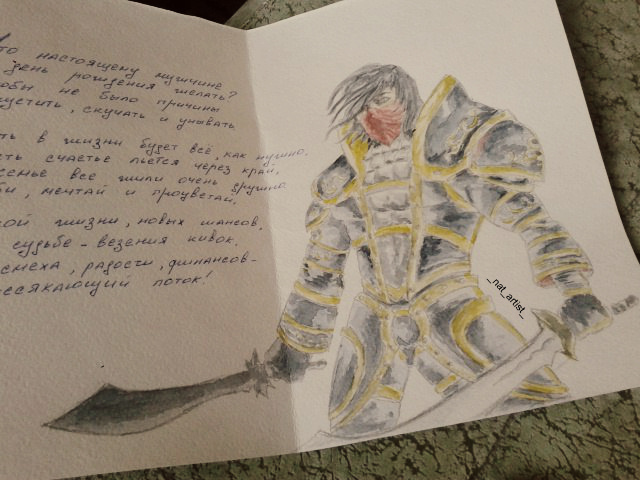 то настоящему мужчине
день рождения желать?
обы не было причины
устить, скучать и унывать
ть в жизни будет всё, как нужно.
сть счастье льется через край,
семье все жили очень дружно.
би, мечтай и процветай.
ой жизни, новых шансов,
судьбе - везения кивок.
смеха, радости, финансов -
ссякающий поток!
_nat_artist_